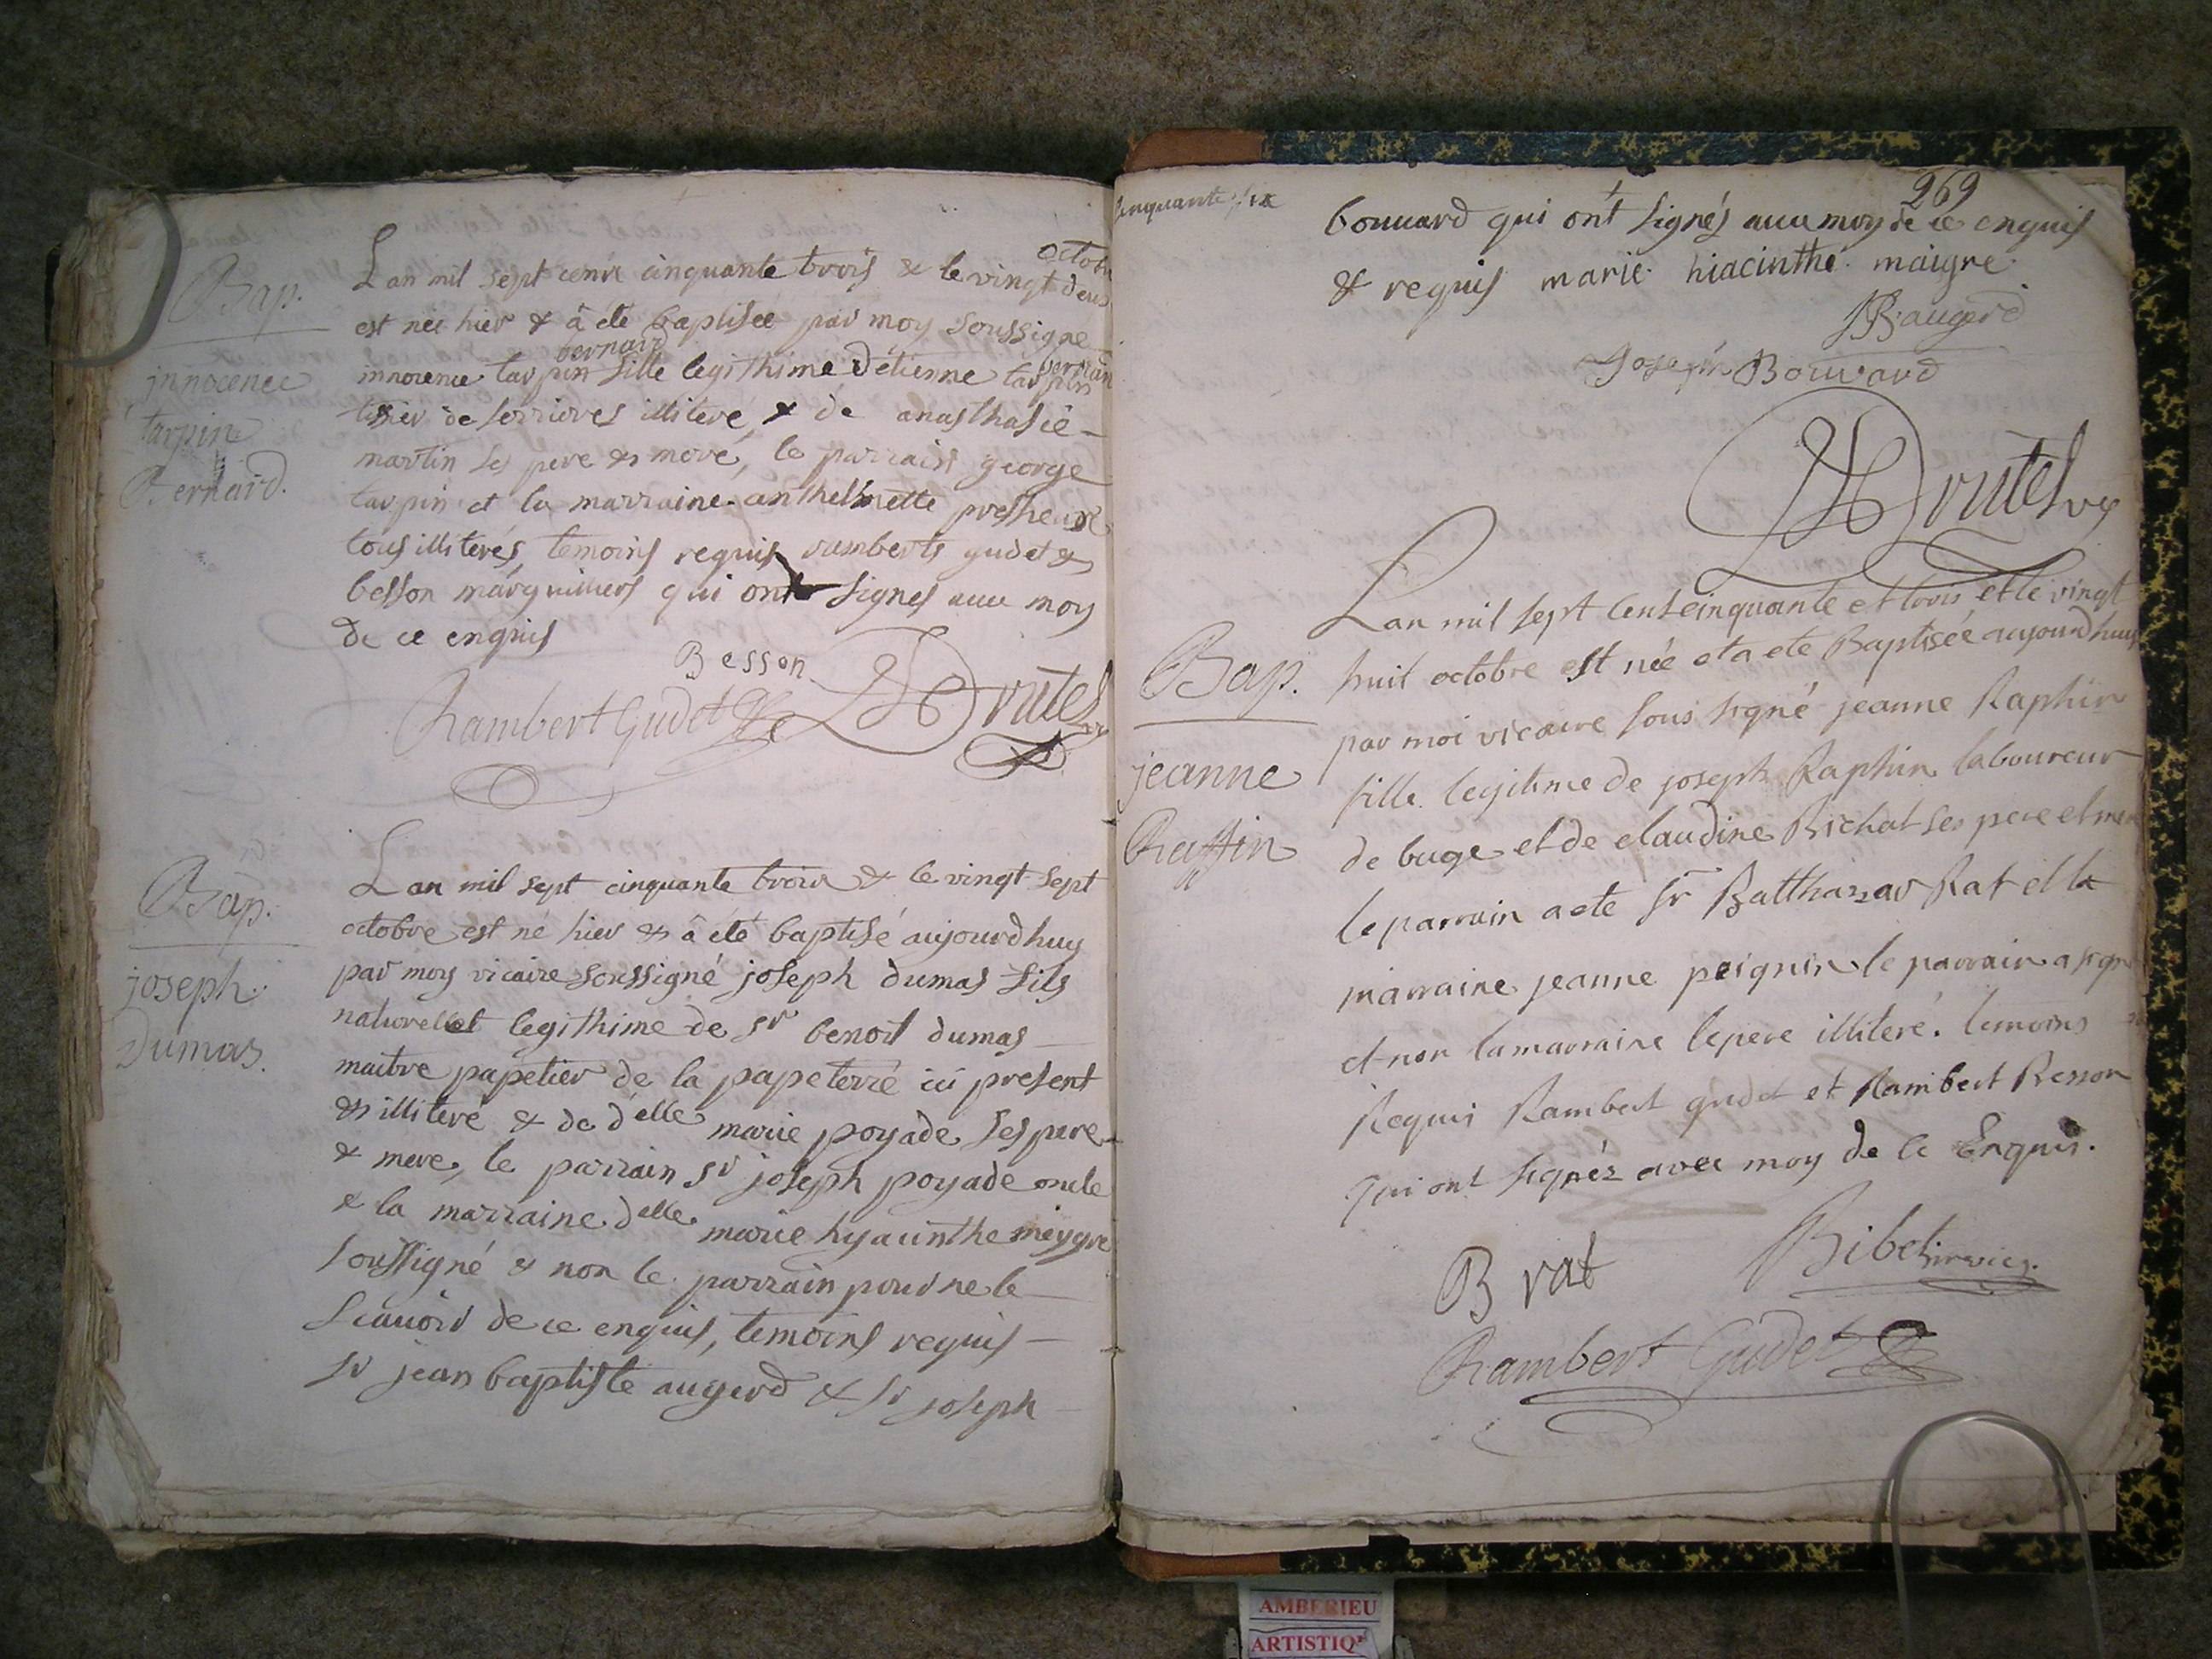 Bap.
innocence
tarpin
Bernard.
octob
Lan mil sept cent cinquante trois & le vingt deux
est née hier & à été baptisée par moy soussigne
bernard
bernard
innocence tarpin fille legithime d'étienne tarpin
tissier de serrieres illiteré & de anasthasie
martin ses pere & mere, le parrain george
tarpin et la marraine anthelmette
tous illiterés, temoins requis ramberts gudet &
besson marguilliers qui ont signes avec moy
de ce enquis
Besson
Rambert Gudet
Drutel
Bap.
joseph
Dumas.
Lan mil sept cinquante trois & le vingt sept
octobre est né hier & à été baptisé aujourdhuy
par moy vicaire soussigné joseph dumas fils
naturel et legithime de sr benoit dumas
maitre papetier de la papeterie ici present
& illiteré & de delle marie poyade ses pere
& mere, le parrain sr joseph poyade oncle
& la marraine delle marie hyacinthe meygre
soussigné & non le parrain pour ne le
scauoir de ce enquis, temoins requis
sr jean baptiste augerd & sr joseph
cinquante six
269
bouuard qui ont signés auec moy de ce enquis
& requis marie hiacinthe maigre
JB augerd
Joseph Bouvard
Drutel
Bap.
jeanne
Raffin
Lan mil sept cent cinquante et trois et le vingt
huit octobre est née et a ete Baptisée aujourdhuy
par moi vicaire sous signé jeanne Raphin
fille legitime de joseph Raphin laboureur
de buge et de claudine Richat ses pere et mere
le parrain a ete sr Balthazar Rat et la
marraine jeanne peignin le parrain a signé
et non la marraine le pere illiteré. temoins
Requis Rambert gudet et Rambert Besson
qui ont signéz avec moy de ce Enquis.
B rat
Ribet
Rambert Gudet
AMBERIEU
ARTISTIQ